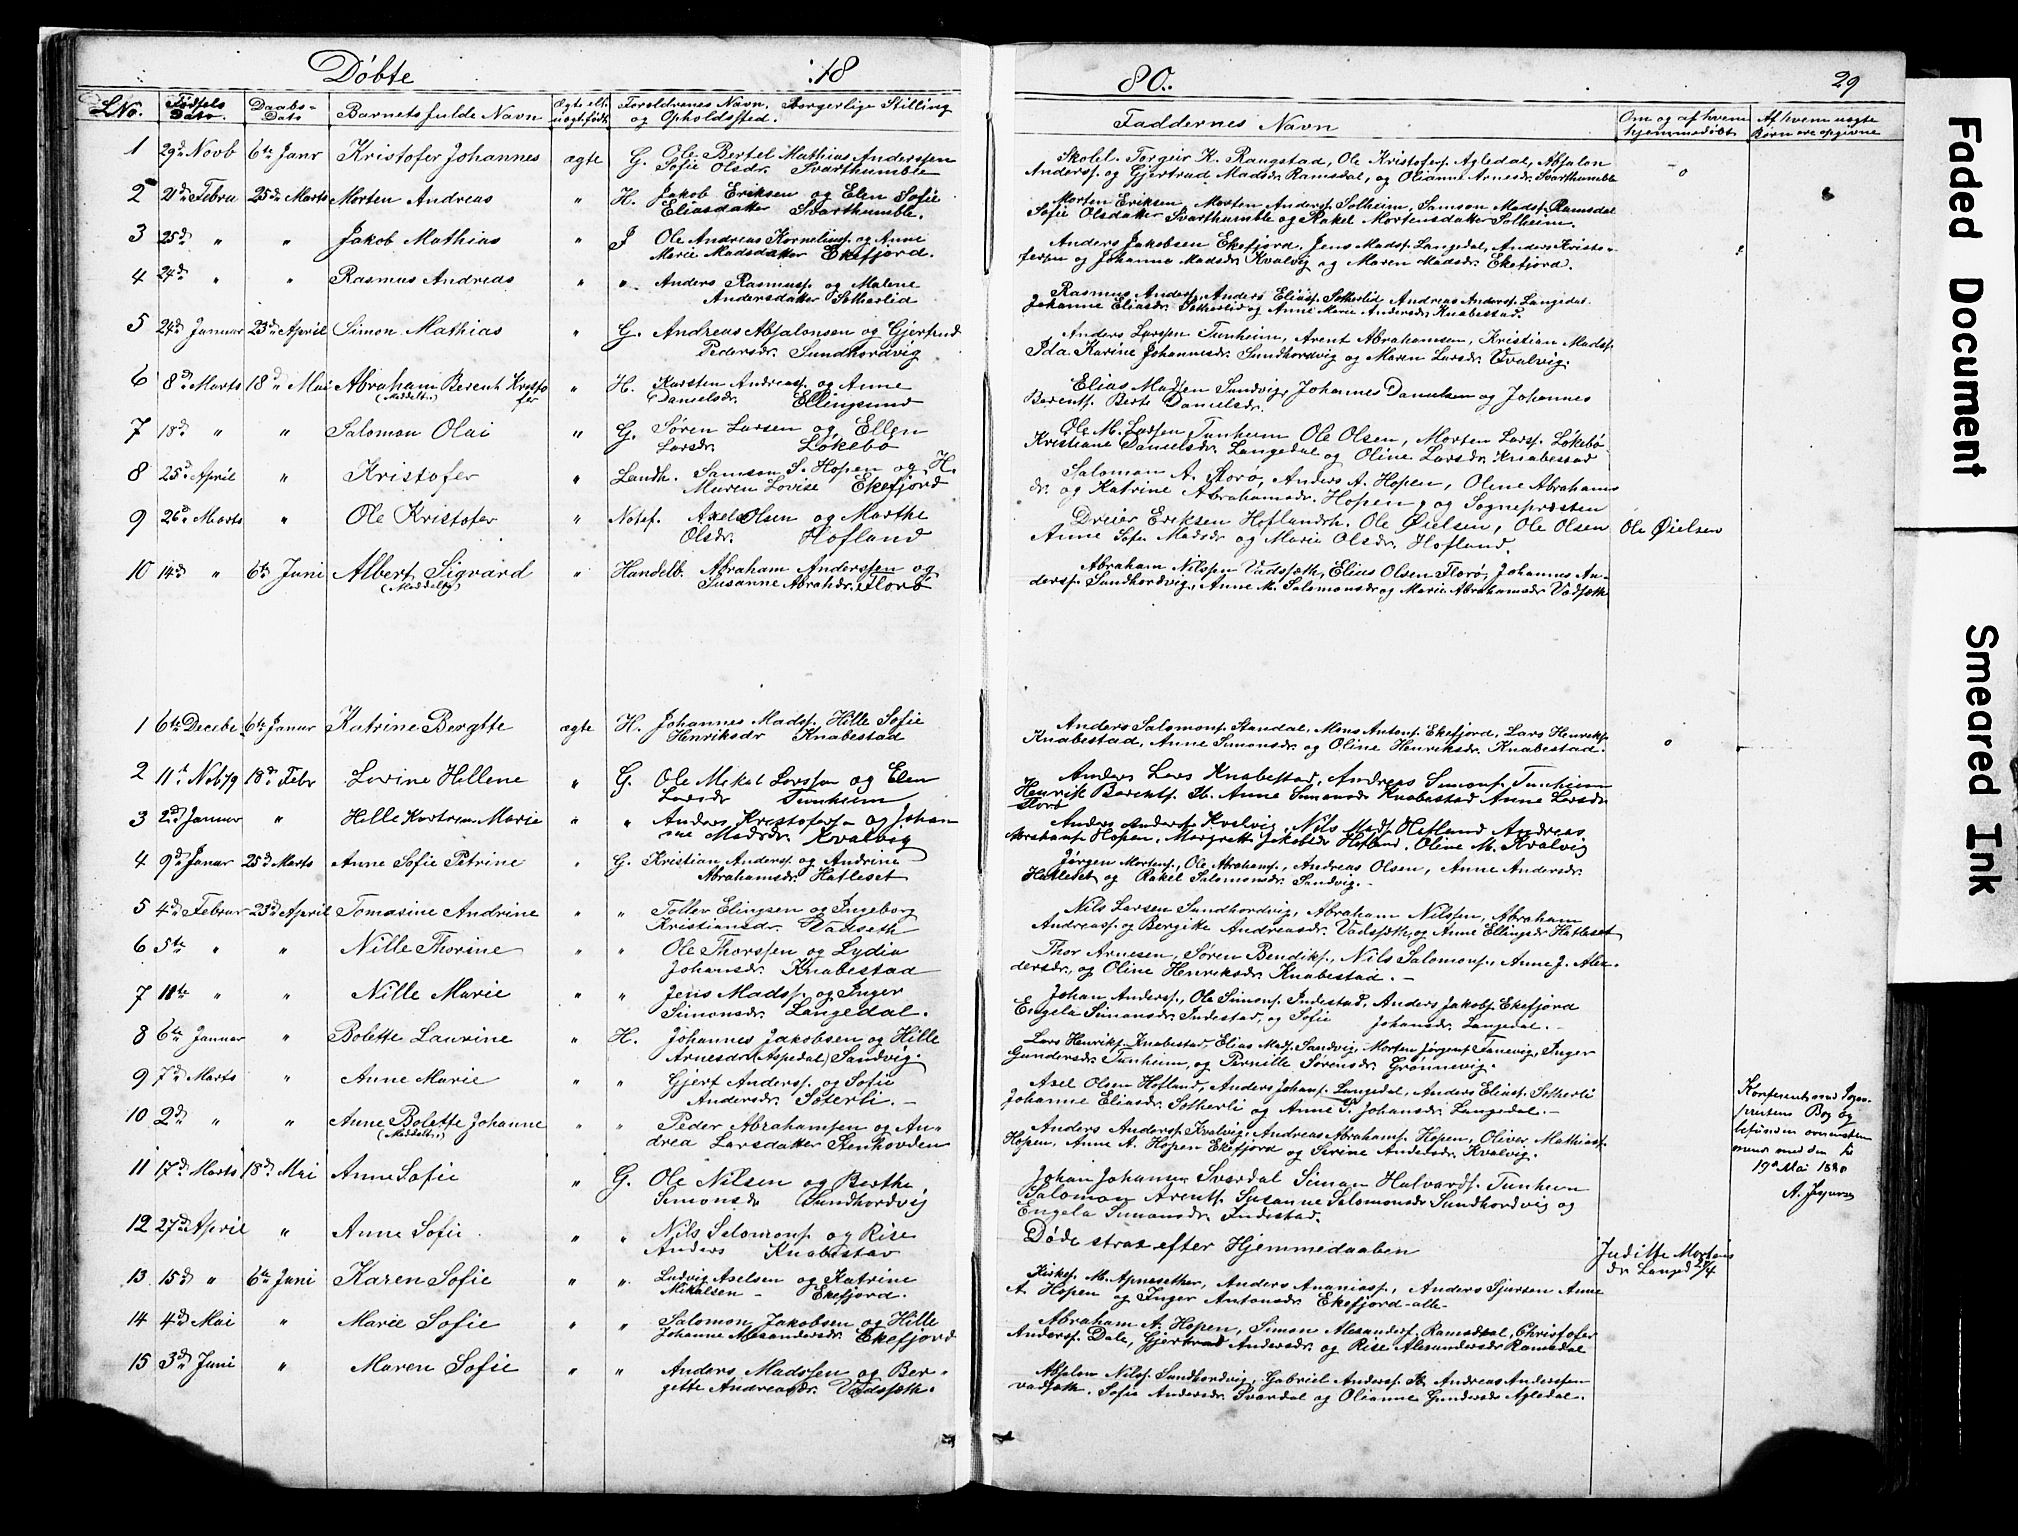 Døbte 18
80. 29
LNo. Fødsels Dato. Daabs-Dato Barnets fulde Navn Ægte ell. uægt. født. Forældrenes Navn, Borgerlige Stilling og Opholdssted. Faddernes Navn Om og af hvem hjemmedøbt Af hvem uægte Børn ere opgivne
1 29d Novb 6te Janr Kristofer Johannes ægte G. Ole Bertel Mathias Anderssen
Sofie Olsdr. Svarthumble
Skolel. Torgeir K. Raugstad, Ole Kristofersp. Agledal, Absalon
Andersp. og Gjertrud Madsdr. Ramsdal, og Olianne Arnesdr. Svarthumble
2 21d Febru 25de Marts Morten Andreas " H. Jakob Eriksen og Elen Sofie
Eliasdatter Svarthumble.
Morten Eriksen, Morten Andersp. Solheim, Samson Madsp. Ramsdal
Sofie Olsdatter Svarthumble og Rakel Mortensdatter Solheim.
3 25d " " Jakob Mathias " J Ole Andreas Kornelinsp. og Anne
Marie Madsdatter Ekefjord.
Anders Jakobsen Ekefjord, Jens Madsp. Langedal, Anders Kristo-
fersen og Johanna Madsdr. Kvalvig og Maren Madsdr. Ekefjord.
4 24d " " Rasmus Andreas " " Anders Rasmusp. og Malene
Andersdatter Sotherlid
Rasmus Andersp, Anders Eliasp. Sotherlid, Andreas Andersp. Langedal
Johanne Eliasdr. Sotherlid og Anne Marie Andersdr. Knabestad.
5 24d Januar 23d April Simon Mathias " G. Andreas Absalonsen og Gjertrud
Pedersdr. Sundhordvig
Anders Larssen Tunheim, Arent Abrahamsen, Kristian Madsp.
Ida Karine Johannesdr. Sundhordvig og Maren Larsdr. Kvalvig.
6 8d Marts 18d Mai Abraham Berent Kristo
fer
" H. Karsten Andreasp. og Anne
Danielsdr. Ellingsund
Elias Madsen Sandvig, Johannes Danielsen og Johannes
Berentsp. Berte Danielsdr.
7 18d " " Salomon Olai " G. Søren Larsen og Ellen
Larsdr. Løkebø
Ole M. Larsen Tunheim Ole Olsen, Morten Larsp. Løkebø
Kristiane Danielsdr. Langedal og Oline Larsdr. Knabestad
8 25d April " Kristofer " Landh. Samson S. Hopen og H.
Maren Lovise Ekefjord
Salomon A. Florø, Anders A. Hopen, Oline Abrahams
dr. og Katrine Abrahamsdr. Hopen, og Sognepresten
9 26d Marts " Ole Kristofer " Notef. Axel Olsen og Marthe
Olsdr. Hofland
Dreier Eriksen Hoflandsh. Ole Øielsen, Ole Olsen
Anne Sofie Madsdr og Marie Olsdr. Hofland.
Ole Øielsen
10 14d " 6te Juni Albert Sigvard " Handelb. Abraham Anderssen og
Susanne Abrahdr. Florø
Abraham Nilssen Vadsæth, Elias Olsen Florø, Johannes An-
dersp. Sundhordvig, Anne M. Salomonsdr og Marie Abrahamsdr Vadsæth
1 6te Decebr 6te Januar Katrine Bergtte ægte H. Johannes Madsp. Hille Sofie
Henriksdr Knabestad
Anders Salomonp. Standal, Mons Antonp. Ekefjord, Lars Henriksp.
Knabestad, Anne Simonsdr. og Oline Henriksdr. Knabestad.
2 11t Nvb 79 18d Febr Lovine Hellene " G. Ole Mikal Larssen og Elen
Larsdr Tunheim
Anders Lars Knabestad, Andreas Simonsp. Tunheim
Henrik Berentsp. St. Anne Simonsdr Knabestad Anne Larsdr
Florø
3 2d Januar " Hille Katrine Marie " " Anders Kristofersen og Johan
ne Madsdr. Kvalvig
Anders Andersp. Kvalvig, Nils Madsp. Hofland Andreas
Abrahamsp. Hopen, Margrette Jakobsdr Hofland. Oline M. Kvalvig
4 9d Januar 25d Marts Anne Sofie Petrine " G. Kristian Andersp. og Andrine
Abrahamsdr. Hatleset
Jørgen Mortensp., Ole Abrahamsp., Andreas Olsen, Anne Andersdr.
Hatleset og Rakel Salomonsdr. Sandvig.
5 4d Februar 23d April Tomasine Andrine " " Tollev Elingsen og Ingeborg
Kristiansdr. Vadseth
Nils Larsen Sundhordvig, Abraham Nilssen, Abraham
Andreasp. og Bergitte Andreasdr. Vadsæth, og Anne Ellingsdr Hatleset
6 5te " " Nille Thorine " " Ole Thorssen og Lydia
Johansdr. Knabestad
Thor Arnesen, Søren Bendiksp., Nils Salomonp., Anne J. Alex-
dersdr., og Oline Henriksdr. Knabestad.
7 11te " " Nille Marie " " Jens Madsp. og Inger
Simonsdr. Langedal.
Johan Andersp., Ole Simonsp. Indestad, Anders Jakobsp. Ekefjord
Engela Simonsdr. Indestad, og Sofie Johansdr. Langedal.
8 6te Januar " Bolette Laurine " H. Johannes Jakobsen og Hille
Arnesdr. (Aspedal) Sandvig.
Lars Henriksp. Knabestad, Elias Madsp. Sandvig, Morten Jørgensp. Tanevig, Inger
Gundersdr. Tunheim, og Pernille Sørensdr. Grønnevig.
9 7d Marts " Anne Marie " " Gjert Andersp. og Sofie
Andersdr. Soterli.
Axel Olsen Hofland, Anders Johansp. Langedal, Anders Eliasp. Sotherli
Johanne Eliasdr. Sotherli og Anne S. Johansdr. Langedal.
10 2d " " Anne Bolette Johanne " " Peder Abrahamsen og An-
drea Larsdatter Stenhovden
Anders Andersp. Kvalvig, Andreas Abrahamsp. Hopen, Oliver Mathiasp.
Hopen, Anne A. Hopen Ekefjord og Serine Andersdr. Kvalvig.
Bog og
19d Mai 1880
11 17d Marts 18d Mai Anne Sofie " G. Ole Nilsen og Berthe
Simonsdr Sundhordvig
Johan Johansen Svardal Simon Halvardsp. Tunheim
Salomon Arentsp. Susanne Salomonsdr Sundhordvig og
Engela Simonsdr. Indestad.
12 27d April " Anne Sofie. " " Nils Salomonp. og Rise
Anders Knabestad
Døde strax efter Hjemmedaaben
Juditte Mortens
dr Langed 27/4
13 15d " 6te Juni Karen Sofie " " Ludvig Axelsen og Katrine
Mikalsen - Ekefjord.
Kirkes. M. Apnesether, Anders Ananiasp., Anders Sjursen Anne
A Hopen og Inger Antonsdr. Ekefjord - alle
14 4d Mai " Marie Sofie " " Salomon Jakobsen og Hille
Johanne Alexandersdr. Ekefjord
Abraham A. Hopen, Simon Alexandersp. Ramsdal, Christofer
Andersp. Dale, Gjertrud Andersdr. og Rise Alexandersdr Ramsdal
15 3d Juni " Maren Sofie " " Anders Madssen og Ber-
gette Andreasdr. Vadsæth.
Absalon Nilsp. Sundhordvig, Gabriel Andersp. St. Andreas Anderssen
vadsæth, Sofie Andersdr. Svardal og Olianne Gundersdr Agledal.
Faded Document
Smeared Ink